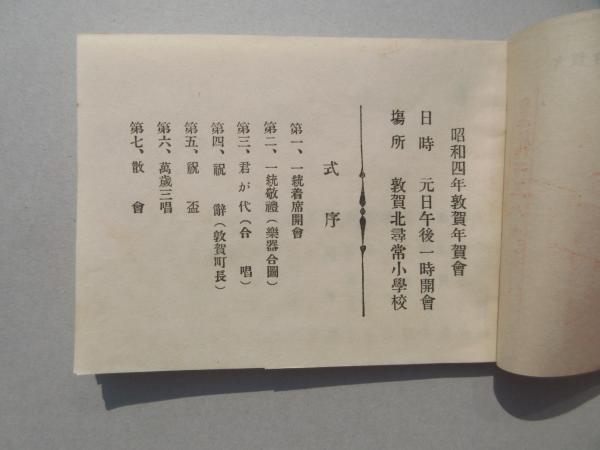 昭和四年敦賀年賀會
日時　元日午後一時開會
塲所　敦賀北尋常小學校
式序
第一、一統着席開會
第二、一統敬禮（樂器合圖）
第三、君が代（合唱）
第四、祝辭（敦賀町長）
第五、祝盃
第六、萬歲三唱
第七、散會